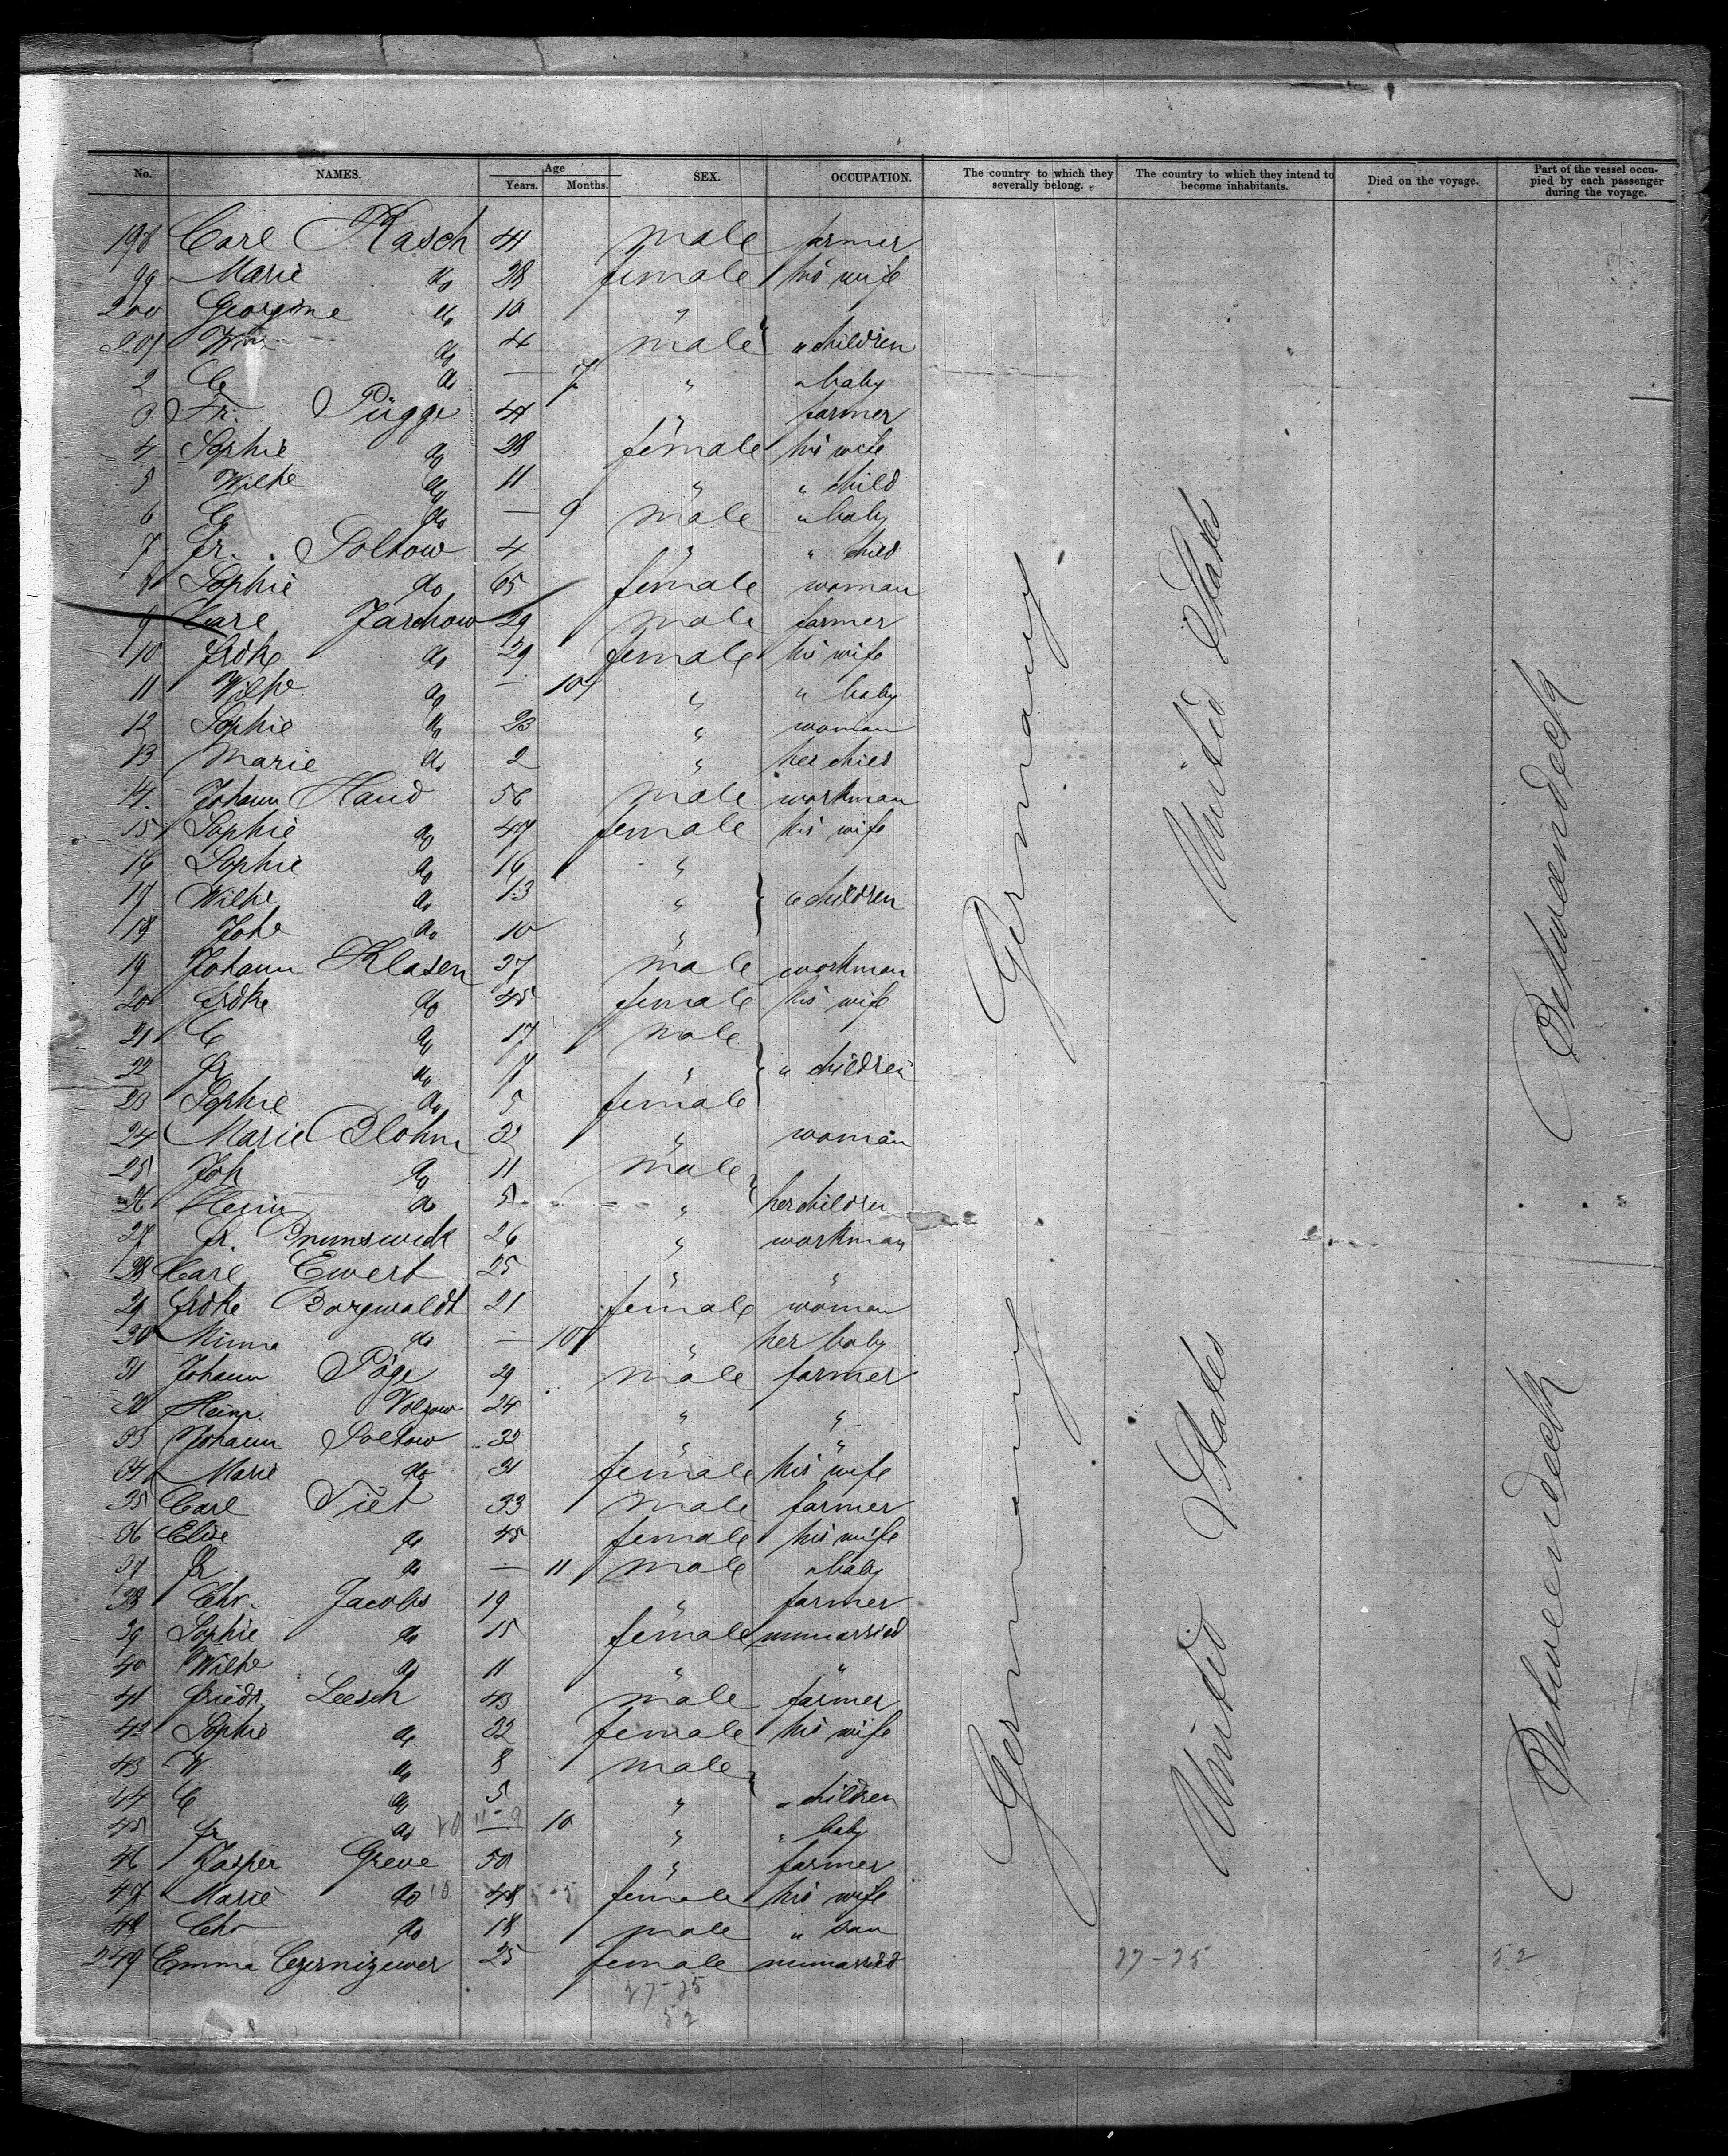 No. NAMES. Age Years. Months. SEX. OCCUPATION. The country to which they severally belong. The country to which they intend to become inhabitants. Died on the voyage. Part of the vessel occupied by each passenger during the voyage.
198 Carl Kasch 41 male farmer
99 Marie do 28 female his wife
200 Georgine do 10 "
201 do 4 male " children
2 C do — 7 " " baby
3 Fr. Pügge 41 " farmer
4 Sophie do 28 female his wife
5 Wilhe do 11 " " child
6 C do — 9 male " baby
7 Fr. Soltow 4 " " child
8 Sophie do 65 female woman
9 Carl Jarchow 29 male farmer
10 Frdke do 29 female his wife
11 Wilhe do — 10 " " baby
12 Sophie do 23 " woman
13 Marie do 2 " her child
14. Johann Haud 56 male workman
15 Sophie do 47 female his wife
16 Sophie do 16 "
17 Wilhe do 13 " " children
18 Johe do 10 "
19 Johann Klasen 37 male workman
20 Frdke do 45 female his wife
21 C do 17 male
22 Fr do 7 " " children
23 Sophie do 5 female
24 Marie Blohm 32 " woman
25 Joh do 11 male
26 Heinr do 5 " her children
27 Fr. Brunswick 26 " workman
28 Carl Ewert 25 " "
29 Frdke Borgwaldt 21 female woman
30 Minna do — 10 " her baby
31 Johann Pöge 29 male farmer
32 Heinr. Volzow 24 " "
33 Johann Soltow 32 " "
34 Marie do 31 female his wife
35 Carl Tiet 33 male farmer
36 Elise do 45 female his wife
37 Fr do — 11 male " baby
38 Chr. Jacobs 19 " farmer
39 Sophie do 15 female unmarried
40 Wilhe do 11 " "
41 Friedr Leesch 43 male farmer
42 Sophie do 32 female his wife
43 W do 8 male
44 C do 5 " " children
45 Fr do — 10 " " baby
46 Jasper Greve 50 " farmer
47 Marie do 48 female his wife
48 Chr do 18 male " son
249 Emma Czernizewer 25 female unmarried
27-25
52
27-25
52
Germany
Germany
United States
United States
Betweendeck
Betweendeck